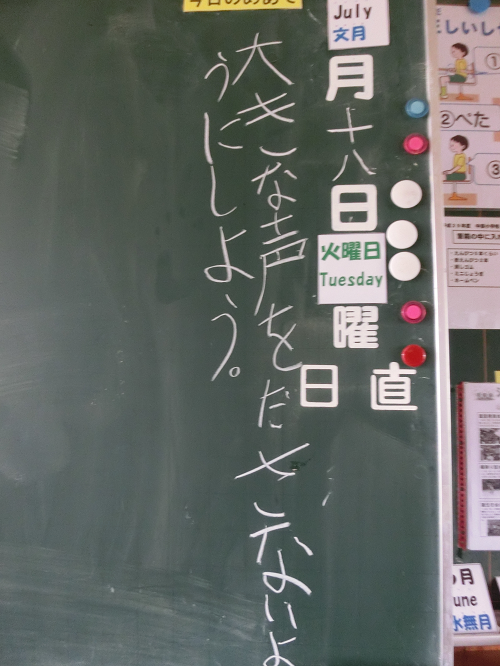 ぺた
②
①
③
July
文月
月
十八
日
火曜日
Tuesday
曜
日
直
今日のめあて
大きな声をださないよ
うにしよう。
月
une
水無月